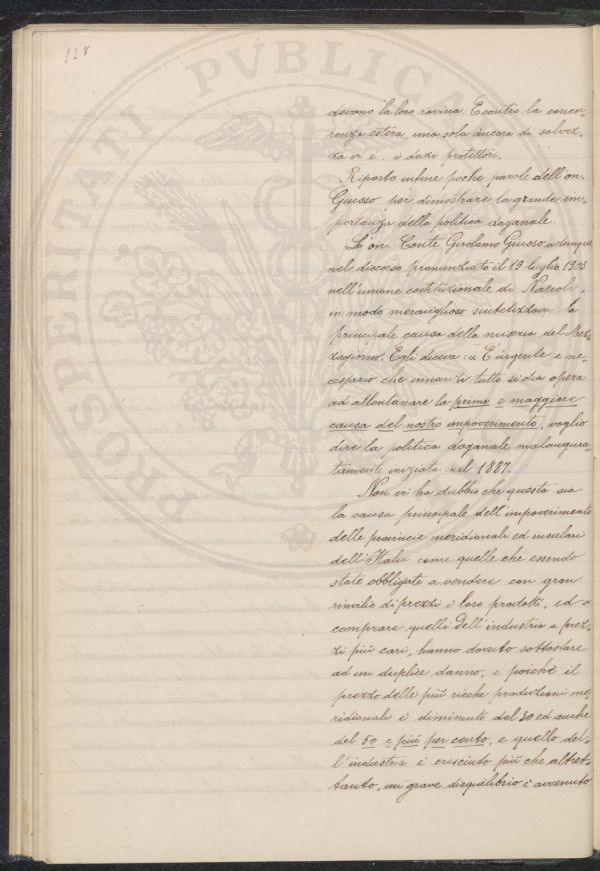 128
PROSPERITATI PVBLICAE
devono la loro rovina. E contro la concor-
renza estera, una sola àncora di salvez-
za vi è: i dazi protettori.
Riporto infine poche parole dell'on.
Giusso per dimostrare la grande im-
portanza della politica doganale.
L'on. Conte Girolamo Giusso adunque
nel discorso pronunziato il 19 luglio 1903
nell'unione costituzionale di Napoli,
in modo meraviglioso sintetizzava la
principale causa della miseria del Mez-
zogiorno. Egli diceva: « È urgente e ne-
cessario che innanzi tutto si dia opera
ad allontanare la prima e maggiore
causa del nostro impoverimento, voglio
dire la politica doganale malaugura-
tamente iniziata nel 1887.
Non vi ha dubbio che questa sia
la causa principale dell'impoverimento
delle provincie meridionali ed insulari
dell'Italia come quelle che essendo
state obbligate a vendere con gran
rinvilio di prezzi i loro prodotti, ed a
comprare quelli dell'industria a prez-
zi più cari, hanno dovuto sottostare
ad un duplice danno, e poichè il
prezzo delle più ricche produzioni me-
ridionali è diminuito del 30 ed anche
del 50 e più per cento, e quello del-
l'industria è cresciuto più che altret-
tanto, un grave disquilibrio è avvenuto